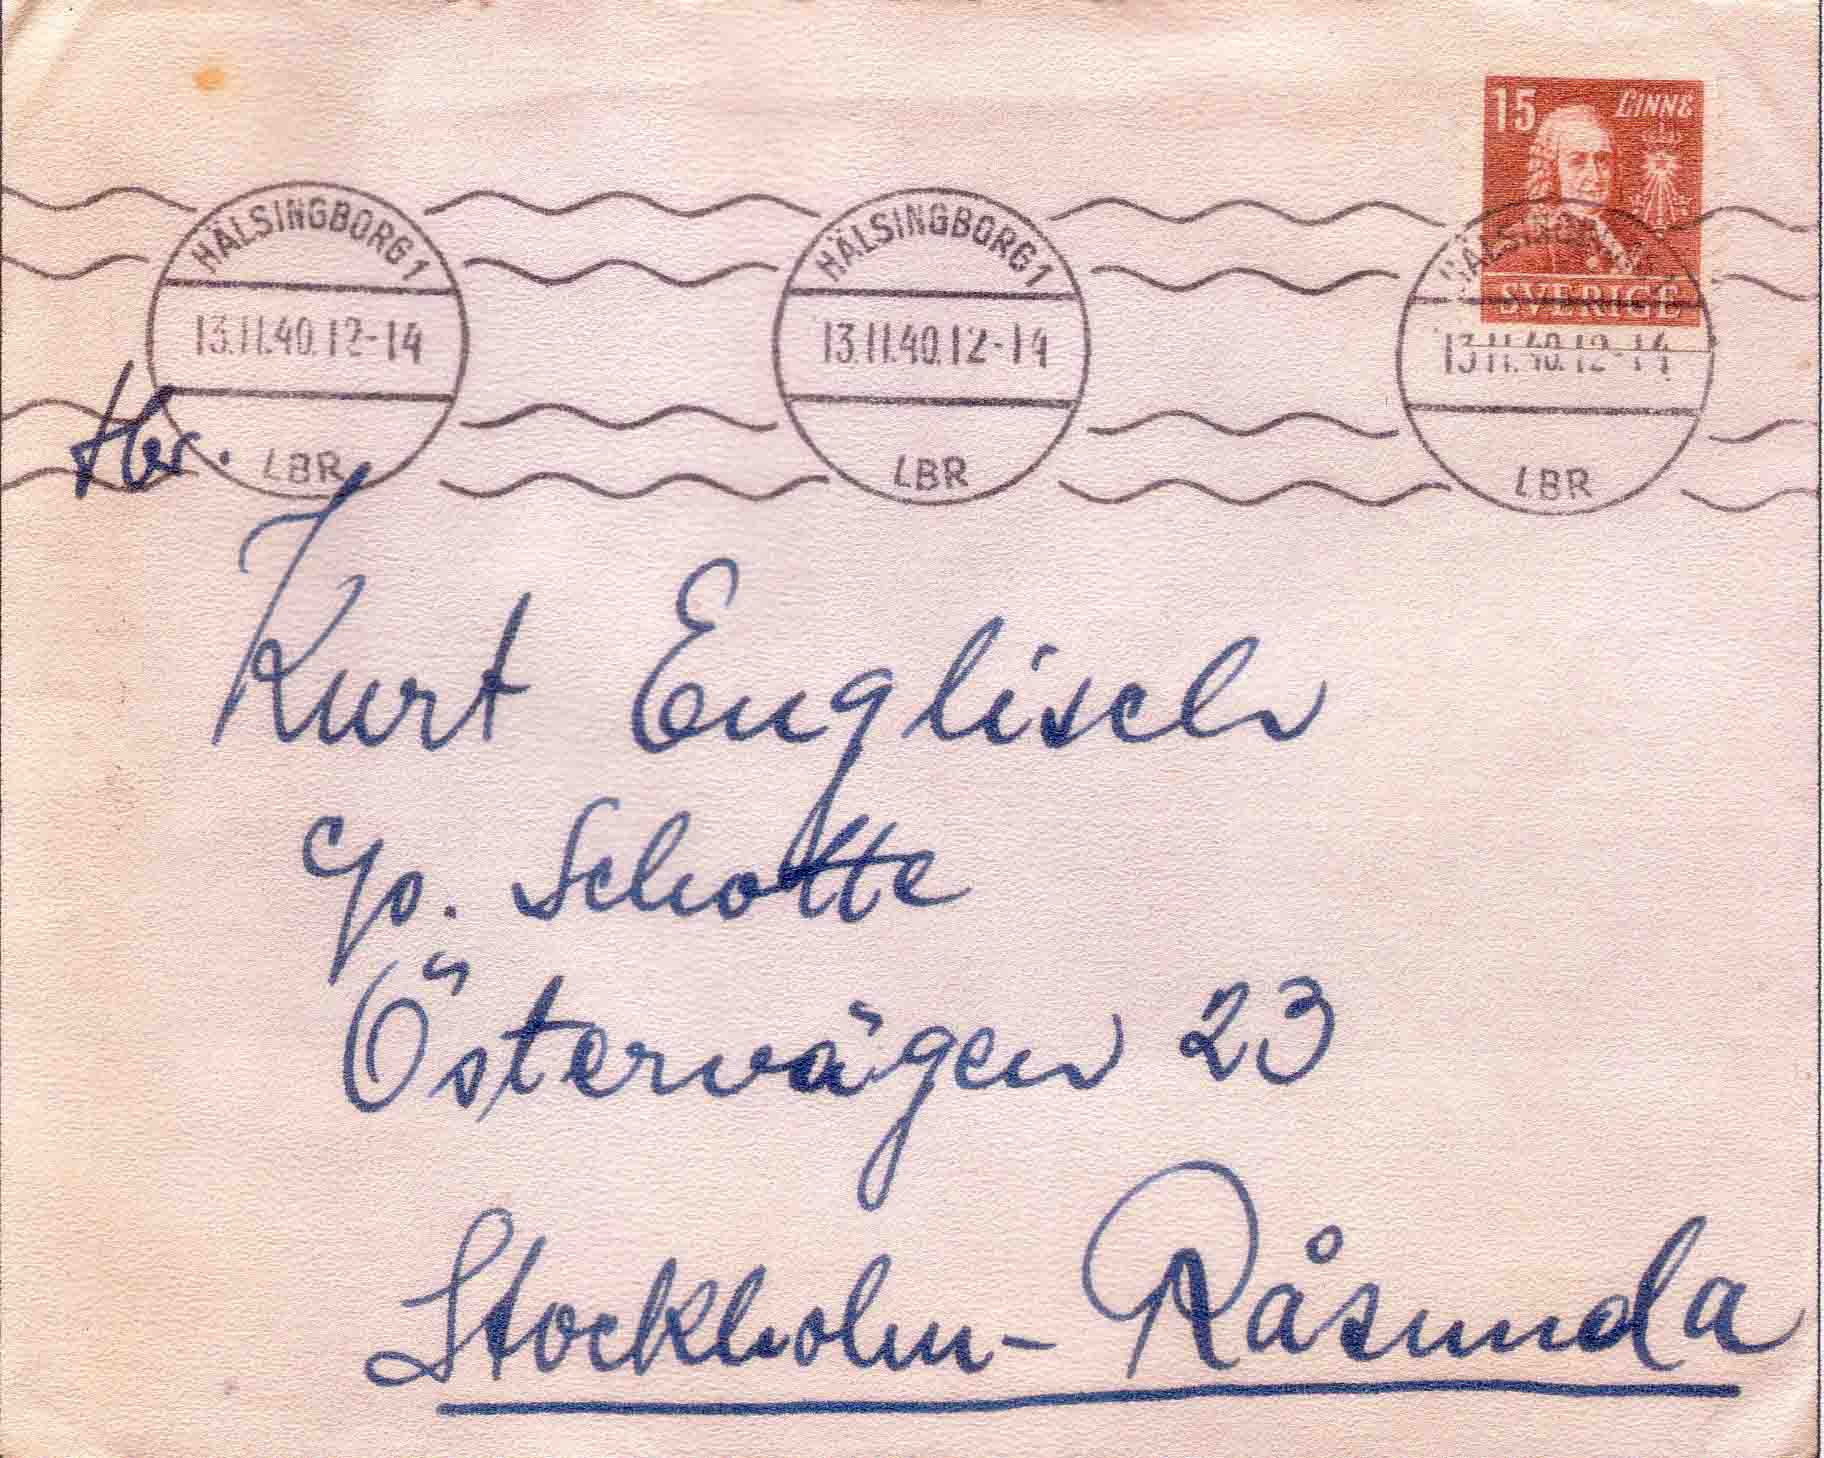 15 LINNÉ
SVERIGE
HÄLSINGBORG 1
13.11.40.12-14
LBR
HÄLSINGBORG 1
13.11.40.12-14
LBR
13.11.40.12-14
LBR
Hr.
Kurt Englisch
c/o. Schotte
Östervägen 23
Stockholm - Råsunda